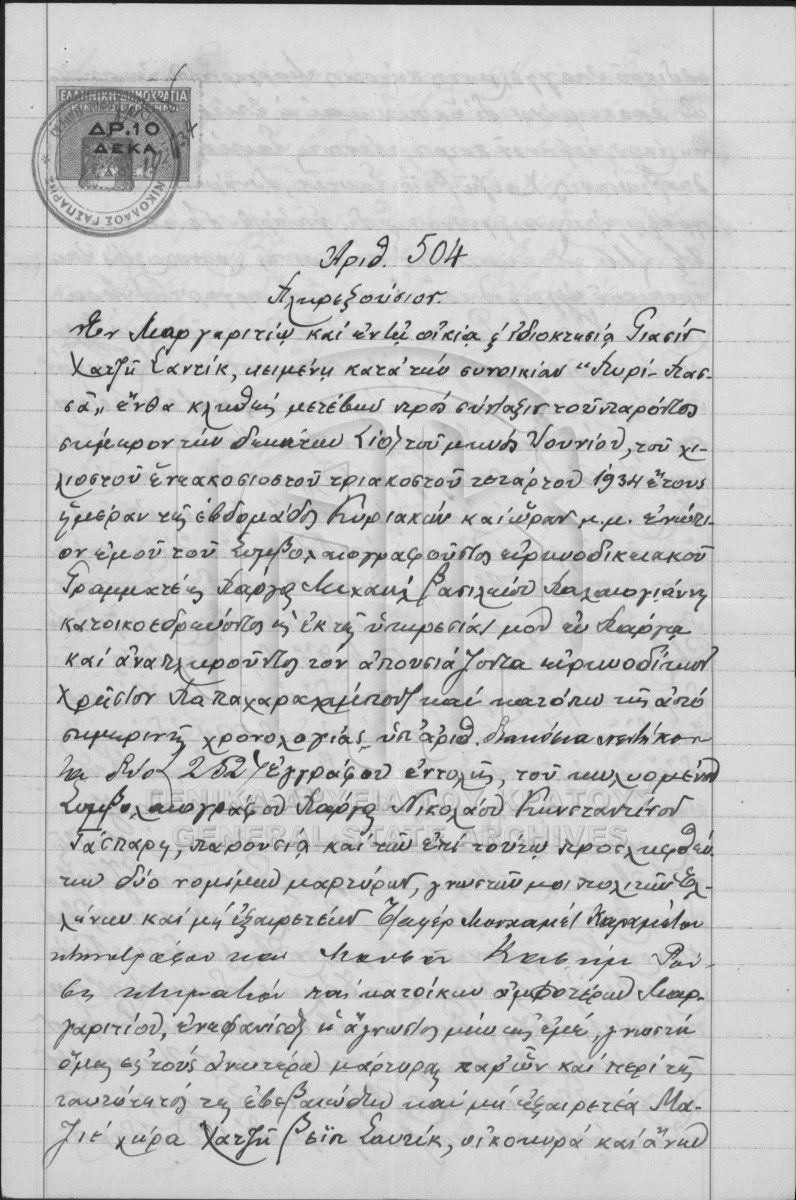 ΕΛΛΗΝΙΚΗ ΔΗΜΟΚΡΑΤΙΑ
ΔΡ. 10
ΔΕΚΑ
ΝΙΚΟΛΑΟΣ ΓΑΣΠΑΡΗΣ
Αριθ. 504
Πληρεξούσιον.
Εν Μαργαριτίῳ και εν τῃ οικίᾳ ιδιοκτησίᾳ Γιασίν
Χατζῆ Σαντίκ, κειμένῃ κατά την συνοικίαν "Κυρί-Πασ-
σᾶ„ ἔνθα κληθείς μετέβην πρός σύνταξιν του παρόντος
σήμερον την δεκάτην του μηνός Ιουνίου, του χι-
λιοστοῦ ἐννακοσιοστοῦ τριακοστοῦ τετάρτου 1934 ἔτους
ἡμέραν της εβδομάδος Κυριακήν και ὥραν μ.μ. ἐνώπι-
ον εμοῦ του Συμβολαιογραφοῦντος ειρηνοδικειακοῦ
Γραμματέως Πάργας Μιχαήλ Βασιλείου Παλαιογιάννη
κατοικοεδρεύοντος ἐκ της ὑπηρεσίας μου εν Πάργᾳ
και ἀναπληροῦντος τον ἀπουσιάζοντα ειρηνοδίκην
Χρῆστον Παπαχαραλάμπους και κατόπιν της ἀπό
σημερινῆς χρονολογίας ὑπ' ἀριθ. διακόσια πεντήκον-
τα δύο 252 ἐγγράφου ἐντολῆς του κωλυομένου
Συμβολαιογράφου Πάργας Νικολάου Κωνσταντίνου
ΓΕΝΙΚΑ ΑΡΧΕΙΑ ΤΟΥ ΚΡΑΤΟΥΣ
GENERAL STATE ARCHIVES
Γάσπαρη, παρουσίᾳ και των επί τούτῳ προσληφθέν-
των δύο νομίμων μαρτύρων, γνωστῶν μοι πολιτῶν Ἑλ-
λήνων και μή ἐξαιρετέων Τζαφέρ Μουχαμέτ
και
κτηματιῶν και κατοίκων ἀμφοτέρων Μαρ-
γαριτίου, ἐνεφανίσθη ἡ ἄγνωστος μέν εἰς ἐμέ, γνωστή
ὅμως εις τους ἀνωτέρω μάρτυρας παρ' ὧν και περί της
ταυτότητός της ἐβεβαιώθην και μή ἐξαιρετέα Μα-
χήρα Χατζῆ Βεΐπ Σαντίκ, οἰκοκυρά και ἄνευ